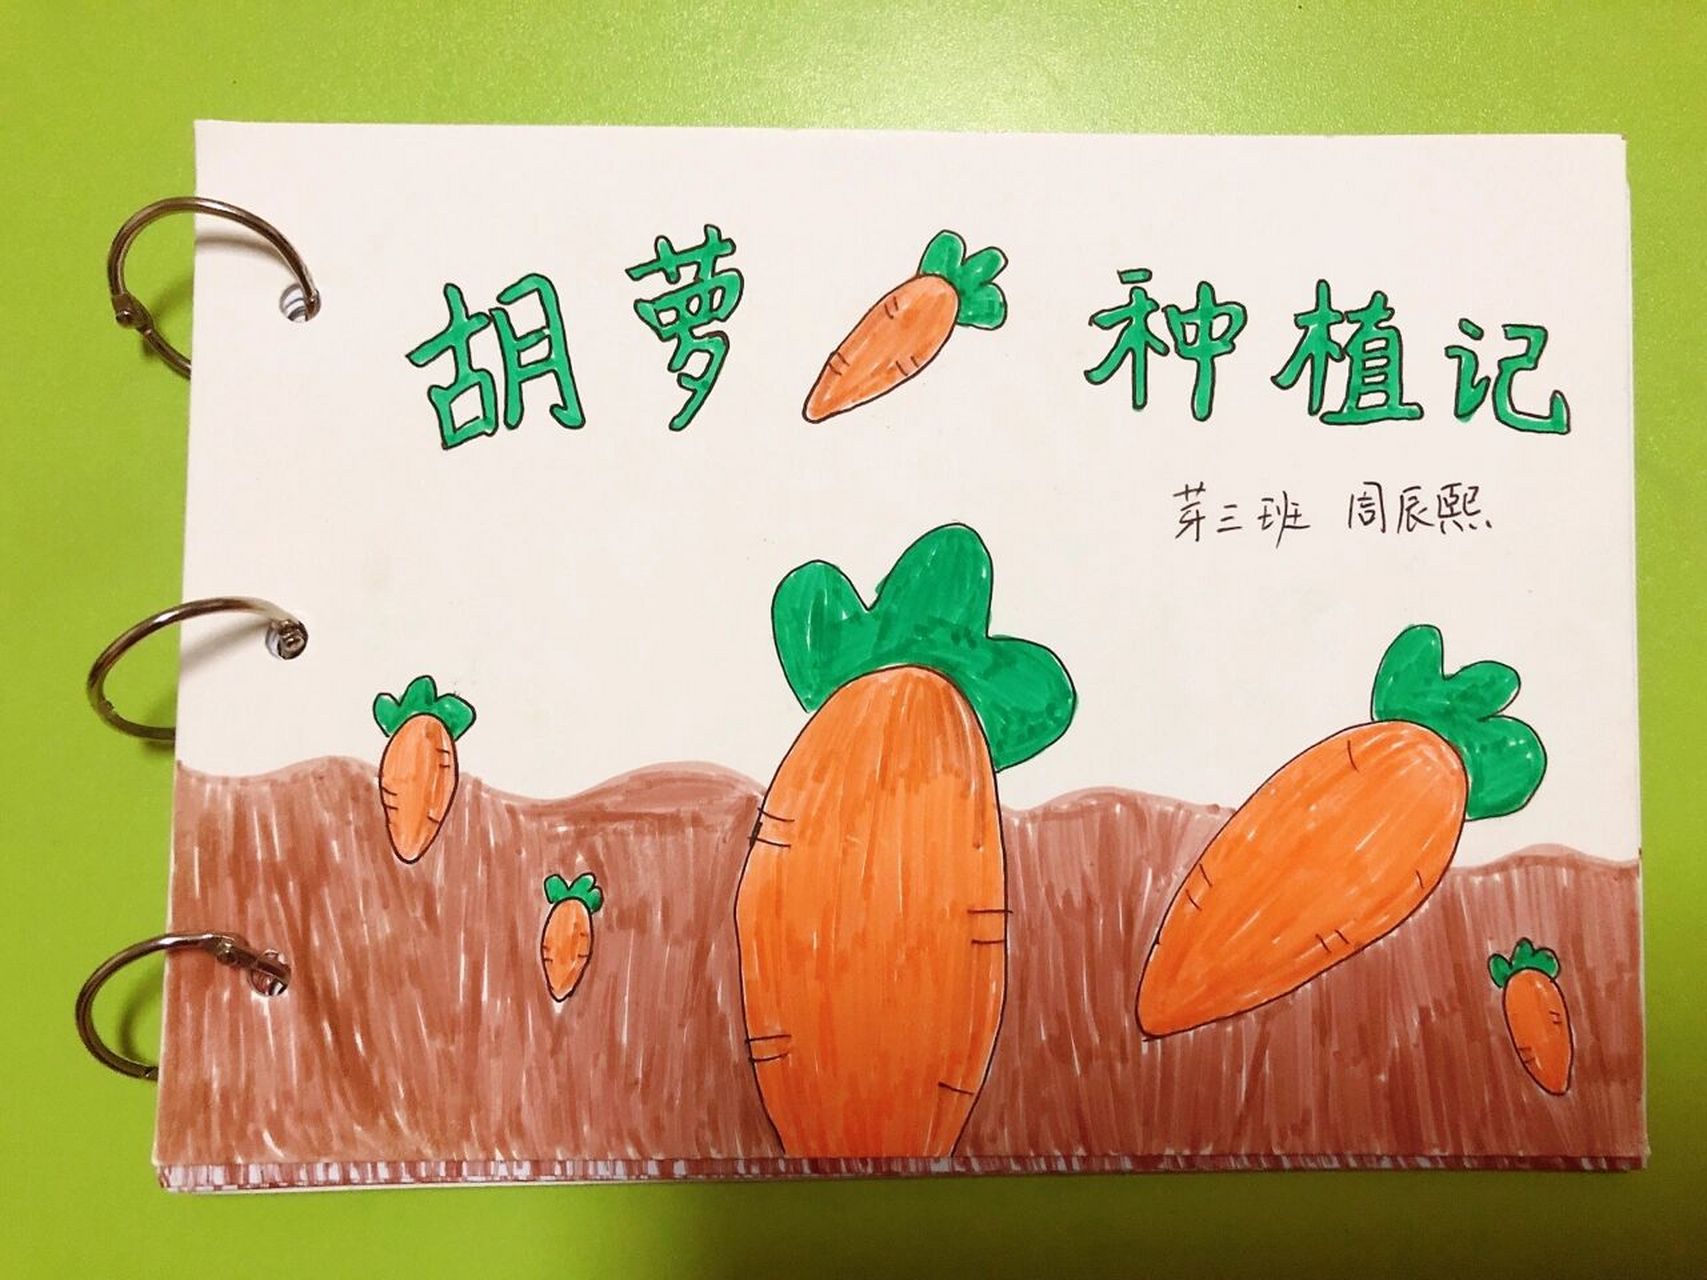 胡萝种植记
芽三班 周辰熙